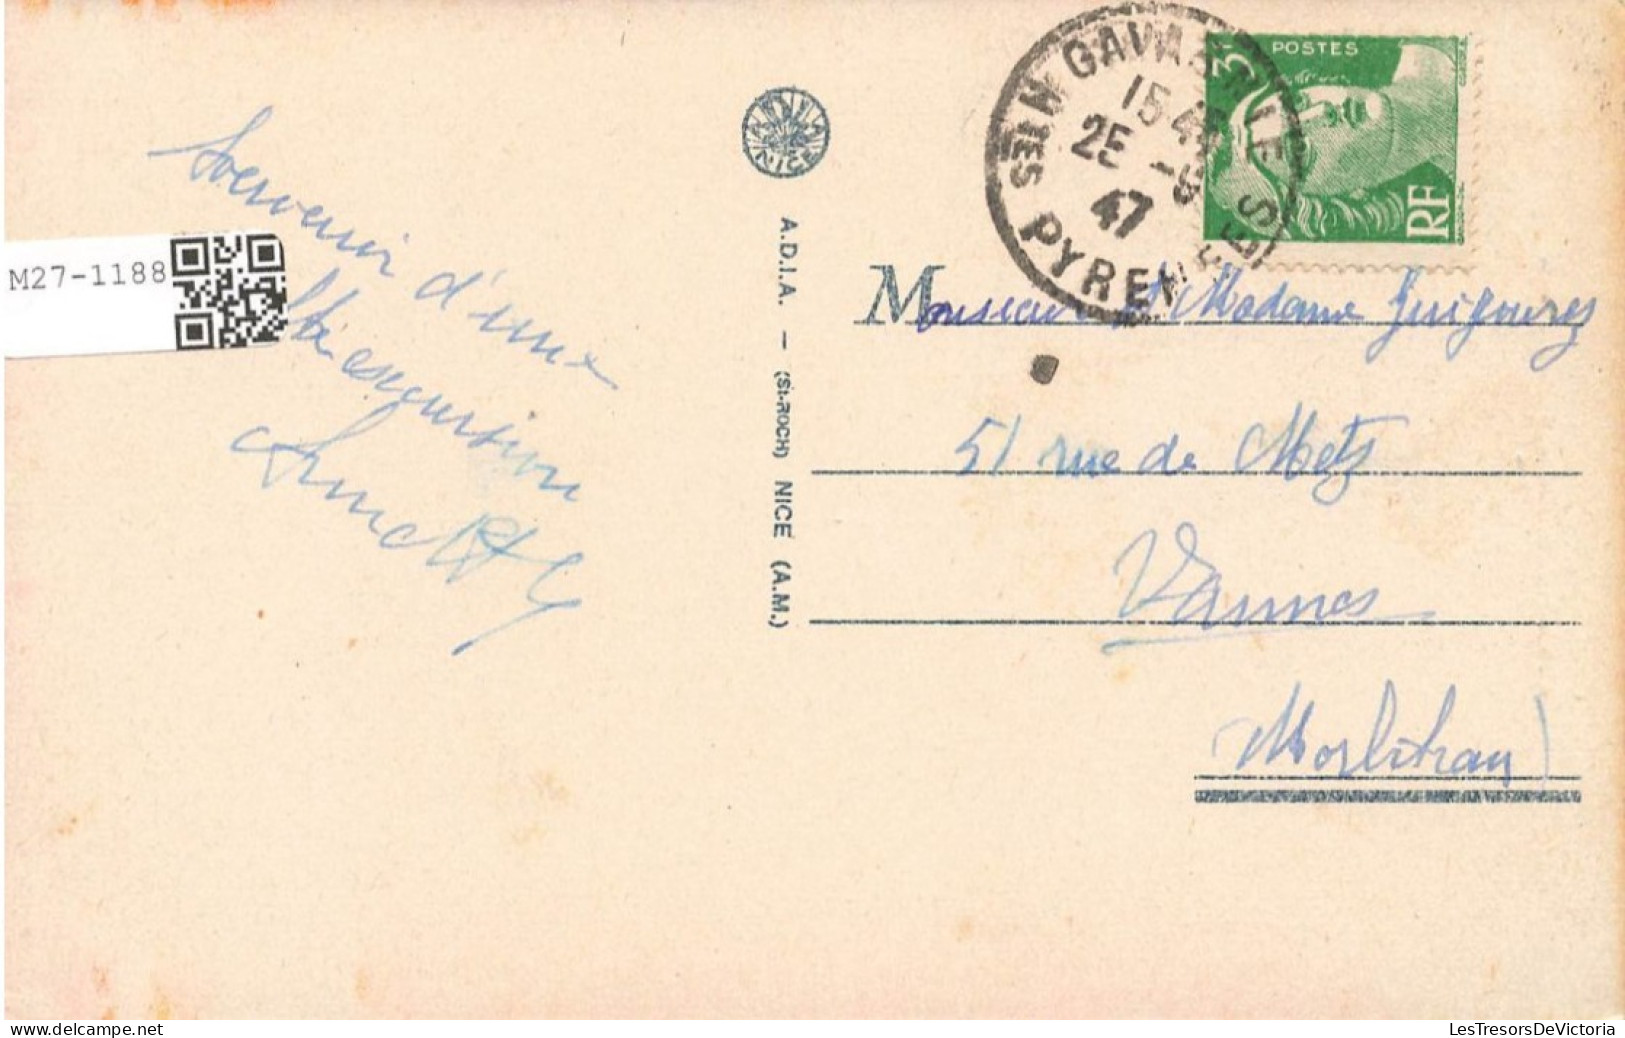 Souvenir
d'une
excursion
M27-1188
ADIA
NICE
A.D.I.A. — (St-ROCH) NICE (A.M.)
GAVARNIE
15 45
25 -
47
HTES PYRENEES
POSTES
3F
RF
Monsieur et Madame
51 rue de Metz
Vannes
(Morbihan)
LesTresorsDeVictoria